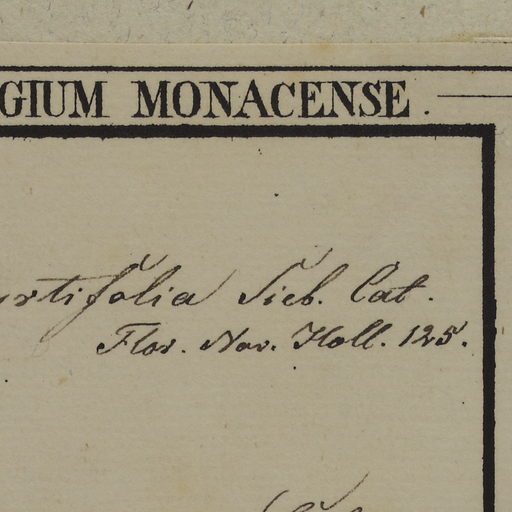 GIUM MONACENSE.
yrtifolia Sieb. Cat.
Flor. Nov. Holl. 125.